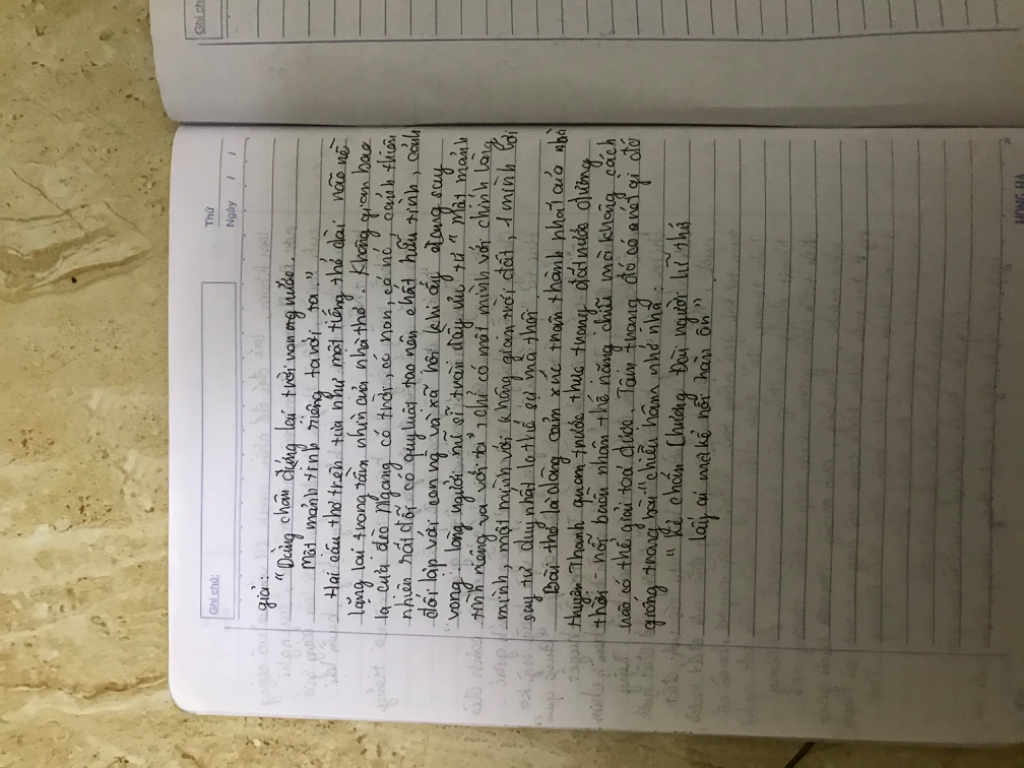 Ghi chú:
Thứ
Ngày / /
giả:
"Dừng chân đứng lại trời non nước
Một mảnh tình riêng ta với ta"
Hai câu thơ trên tựa như một tiếng thở dài não nề
lặng lại trong tầm nhìn của nhà thơ. Không quan bao
la, cửa đèo Ngang có trời, có non, có nước, cảnh thiên
nhiên rất đối có quy luật tạo nên chất hữu tình, cảnh
đối lập với con người xã hội khi ấy đang suy
vong, lòng người nữ sĩ tràn đầy sầu tư "Một mảnh
tình riêng ta với ta", chỉ có một mình với chính lòng
mình, một mình với không gian trời đất, 1 mình với
suy tư duy nhất là thế sự mà thôi.
Bài thơ là dòng cảm xúc trầm thành nhất của bà
huyện Thanh Quan trước thực trạng đất nước đương
thời - nỗi buồn nhân thế nặng trĩu mà không cách
nào có thể giải toả được. Tâm trạng đó có cái gì đó
giống trong bài "chiều hôm nhớ nhà:
"Kẻ chốn Chương Đài người lữ thứ
Lấy ai mà kể nỗi hàn ôn"
Ghi ch
HONG HA